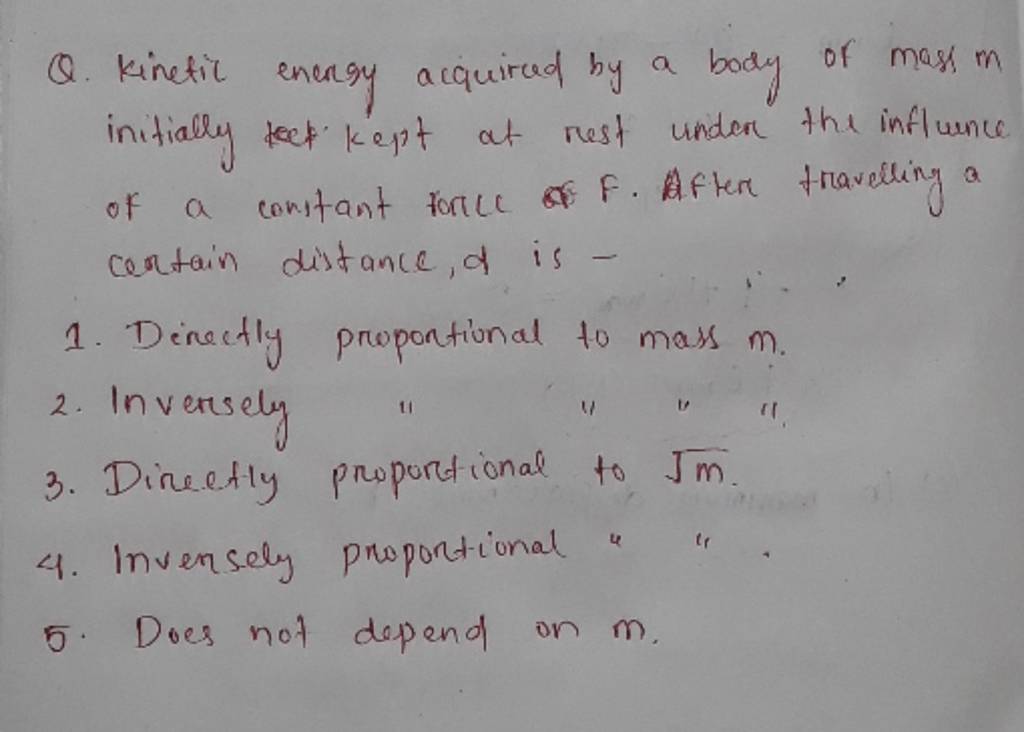 Q. Kinetic energy acquired by a body of mass m
initially kept at rest under the influence
of a constant force F. After travelling a
certain distance, d is –
1. Directly proportional to mass m.
2. Inversely " " " ".
3. Directly proportional to √m.
4. Inversely proportional " " .
5. Does not depend on m.